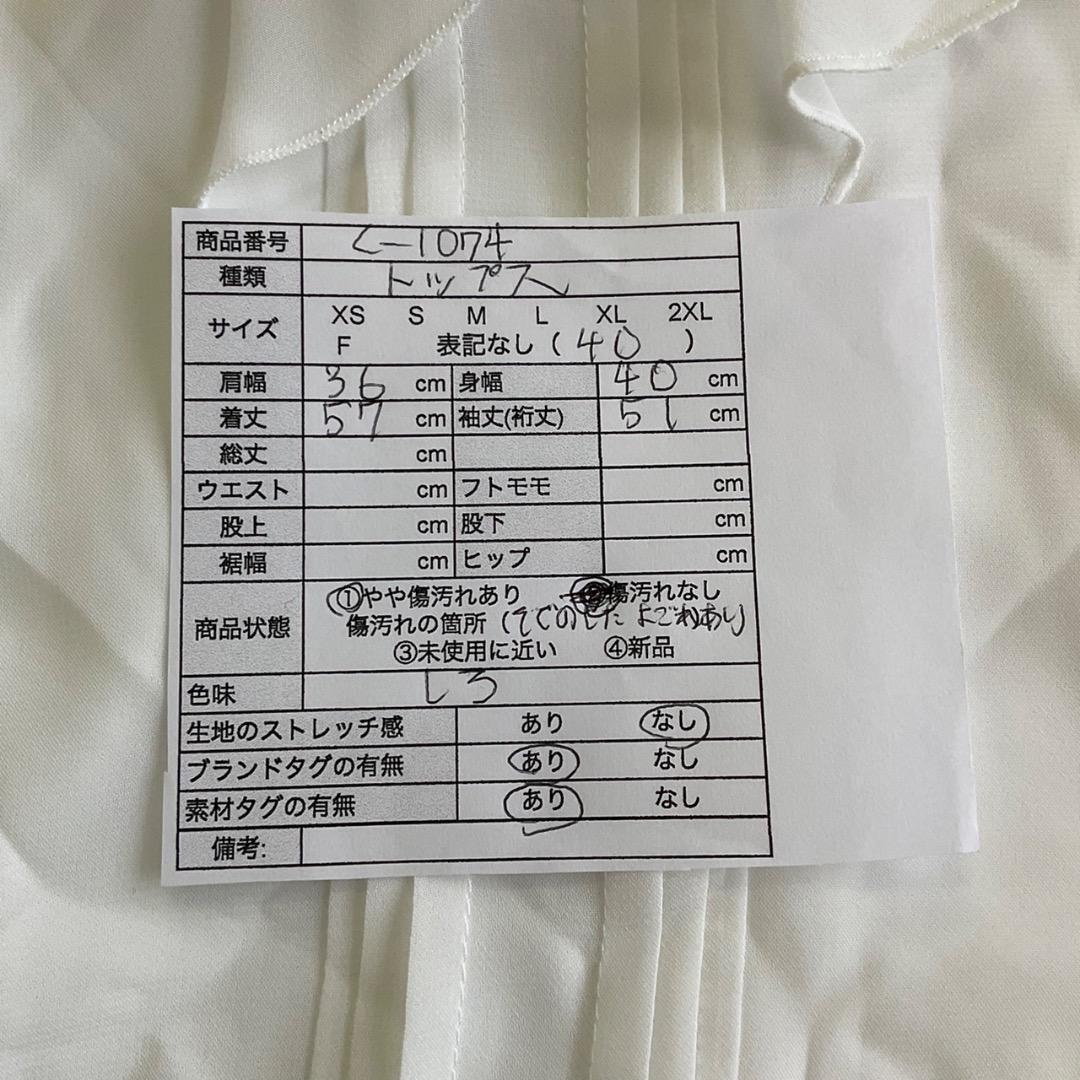 商品番号 く-1074
種類 トップス
サイズ XS S M L XL 2XL
F 表記なし ( 40 )
肩幅 36 cm 身幅 40 cm
着丈 57 cm 袖丈(裄丈) 51 cm
総丈 cm
ウエスト cm フトモモ cm
股上 cm 股下 cm
裾幅 cm ヒップ cm
商品状態 ①やや傷汚れあり ②傷汚れなし
傷汚れの箇所 (そでのした よごれあり)
③未使用に近い ④新品
色味 しろ
生地のストレッチ感 あり なし
ブランドタグの有無 あり なし
素材タグの有無 あり なし
備考: